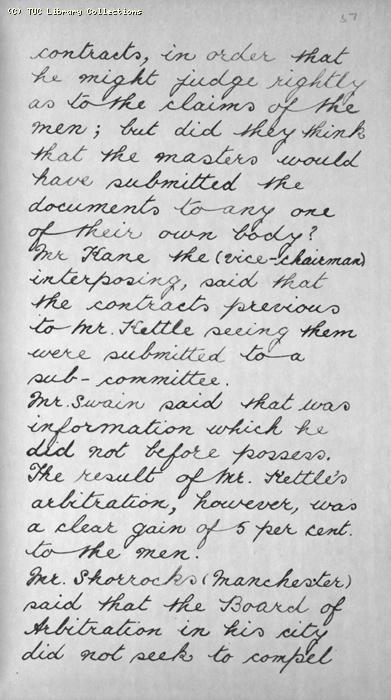 (C) TUC Library Collections
37
contracts, in order that
he might judge rightly
as to the claims of the
men; but did they think
that the masters would
have submitted the
documents to any one
of their own body?
Mr Kane the (vice-chairman)
interposing, said that
the contracts previous
to Mr. Kettle seeing them
were submitted to a
sub-committee.
Mr. Swain said that was
information which he
did not before possess.
The result of Mr. Kettle's
arbitration, however, was
a clear gain of 5 per cent.
to the men.
Mr. Shorrocks (Manchester)
said that the Board of
Arbitration in his city
did not seek to compel